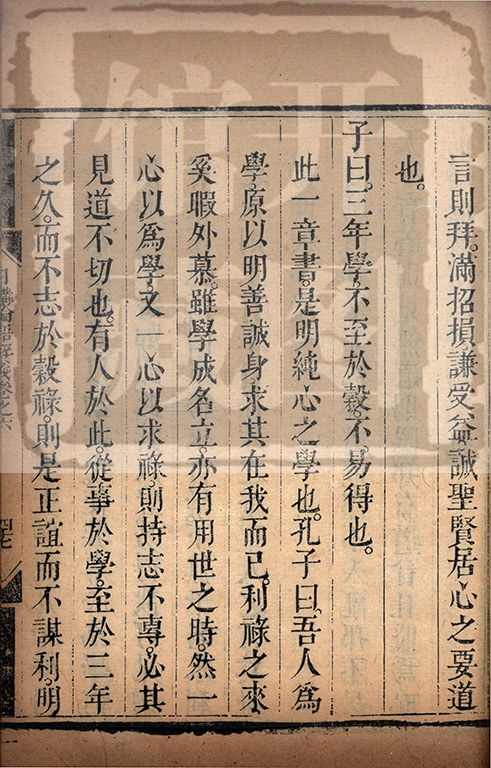 言則拜。滿招損。謙受益。誠聖賢居心之要道
也。
子曰。三年學。不至於穀。不易得也。
此一章書。是明純心之學也。孔子曰。吾人為
學。原以明善誠身。求其在我而已。利祿之來
奚暇外慕。雖學成名立。亦有用世之時。然一
心以為學。又一心以求祿。則持志不專。必其
見道不切也。有人於此。從事於學。至於三年
之久。而不志於穀祿。則是正誼而不謀利。明